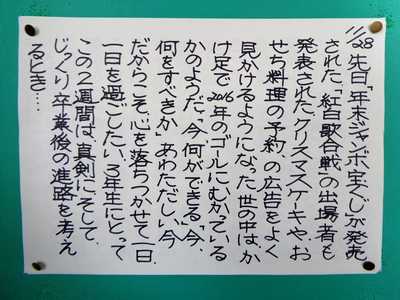 11/28 先日「年末ジャンボ宝くじ」が発売
された。「紅白歌合戦」の出場者も
発表された。クリスマスケーキや、お
せち料理の予約、の広告をよく
見かけるようになった。世の中は、か
け足で2016年のゴールにむかっている
かのようだ。「今、何ができる」「今、
何をすべきか」あわただしい、今
だからこそ、心を落ちつかせて一日、
一日を過ごしたい。3年生にとって
この2週間は、真剣に、そして、
じっくり卒業後の進路を考え
るとき…